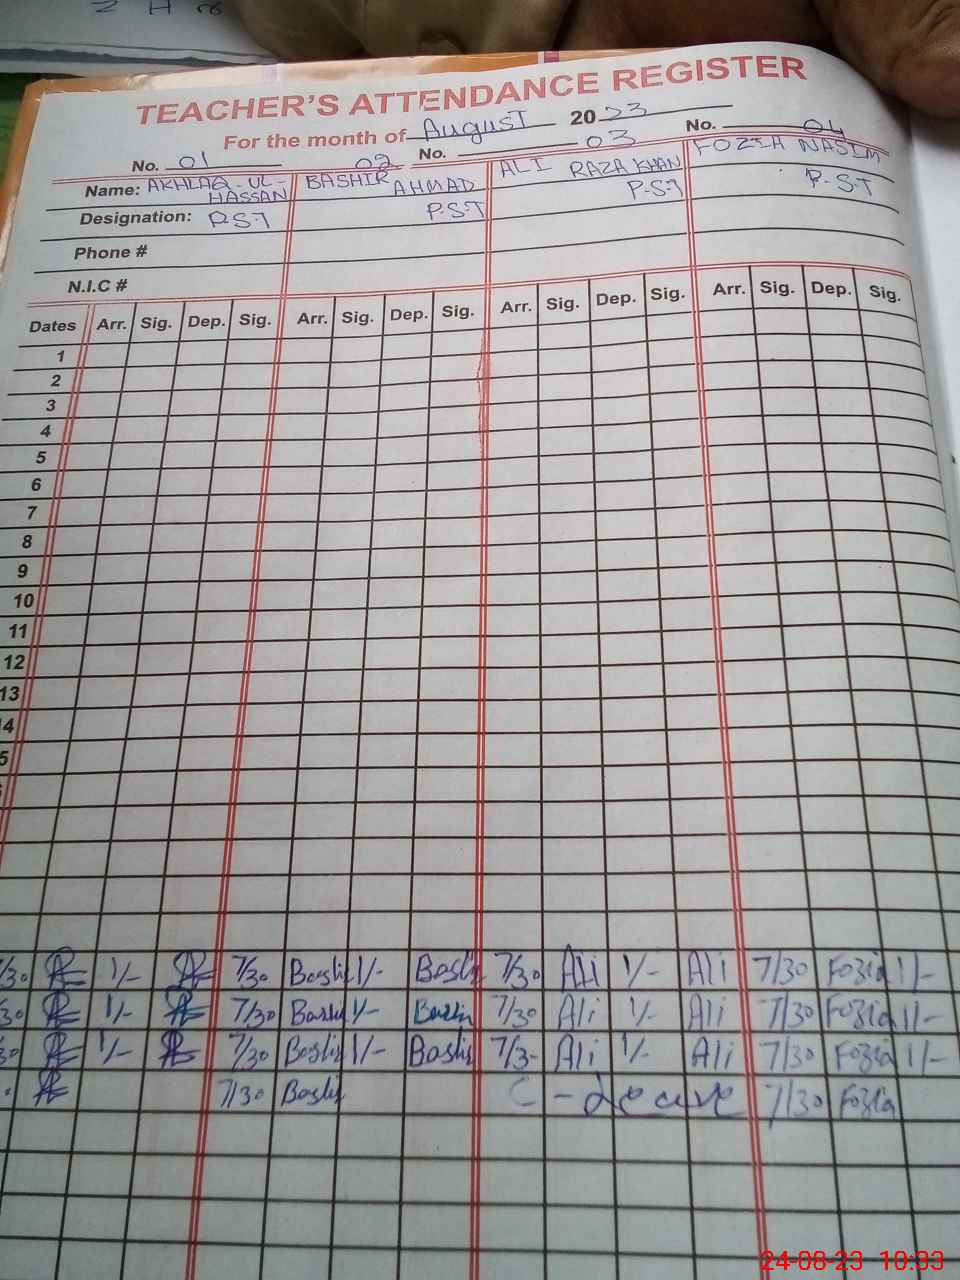 TEACHER'S ATTENDANCE REGISTER
For the month of August 2023
No. 01 02 No. 03 No. 04
Name: AKHLAQ-UL-HASSAN BASHIR AHMAD ALI RAZA KHAN FOZIA NASIM
Designation: P.S.T P.S.T P.S.T P.S.T
Phone #
N.I.C #
Dates Arr. Sig. Dep. Sig. Arr. Sig. Dep. Sig. Arr. Sig. Dep. Sig. Arr. Sig. Dep. Sig.
1
2
3
4
5
6
7
8
9
10
11
12
13
4
5
/30 1/- 7/30 Bashir 1/- Bashir 7/30 Ali 1/- Ali 7/30 Fozia 1/-
30 1/- 7/30 Bashir 1/- Bashir 7/30 Ali 1/- Ali 7/30 Fozia 1/-
30 1/- 7/30 Bashir 1/- Bashir 7/3- Ali 1/- Ali 7/30 Fozia 1/-
7/30 Bashir C - leave 7/30 Fozia
24-08-23 10:33